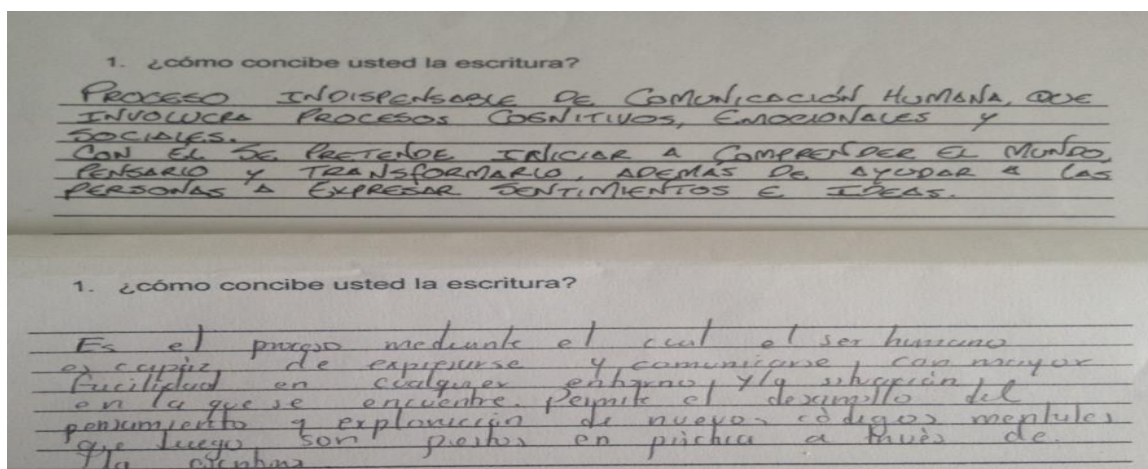 1. ¿cómo concibe usted la escritura?
PROCESO INDISPENSABLE DE COMUNICACIÓN HUMANA, QUE
INVOLUCRA PROCESOS COGNITIVOS, EMOCIONALES Y
SOCIALES.
CON EL SE PRETENDE INICIAR A COMPRENDER EL MUNDO,
PENSARLO Y TRANSFORMARLO, ADEMÁS DE AYUDAR A LAS
PERSONAS A EXPRESAR SENTIMIENTOS E IDEAS.
1. ¿cómo concibe usted la escritura?
Es el proceso mediante el cual el ser humano
es capáz de expresarse y comunicarse, con mayor
facilidad en cualquier entorno, y/o situación
en la que se encuentre. Permite el desarrollo del
pensamiento y exploración de nuevos códigos mentales
que luego son puestos en práctica a través de
la escritura